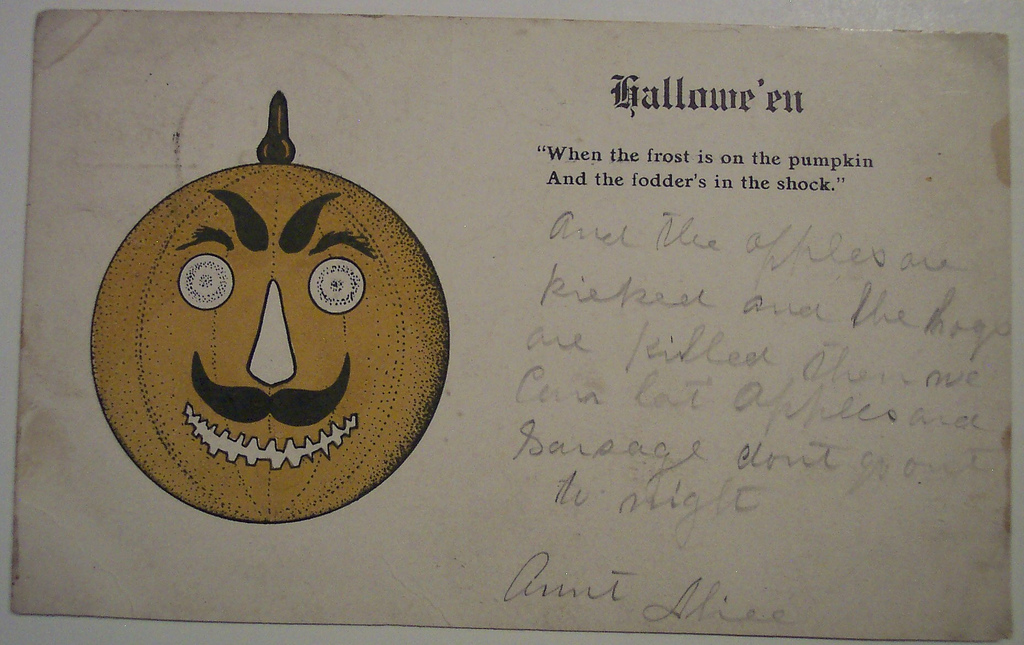 Hallowe'en
"When the frost is on the pumpkin
And the fodder's in the shock."
And the apples are
picked and the hogs
are killed then we
Can Eat Apples and
Sausage dont go out
to night
Aunt Alice